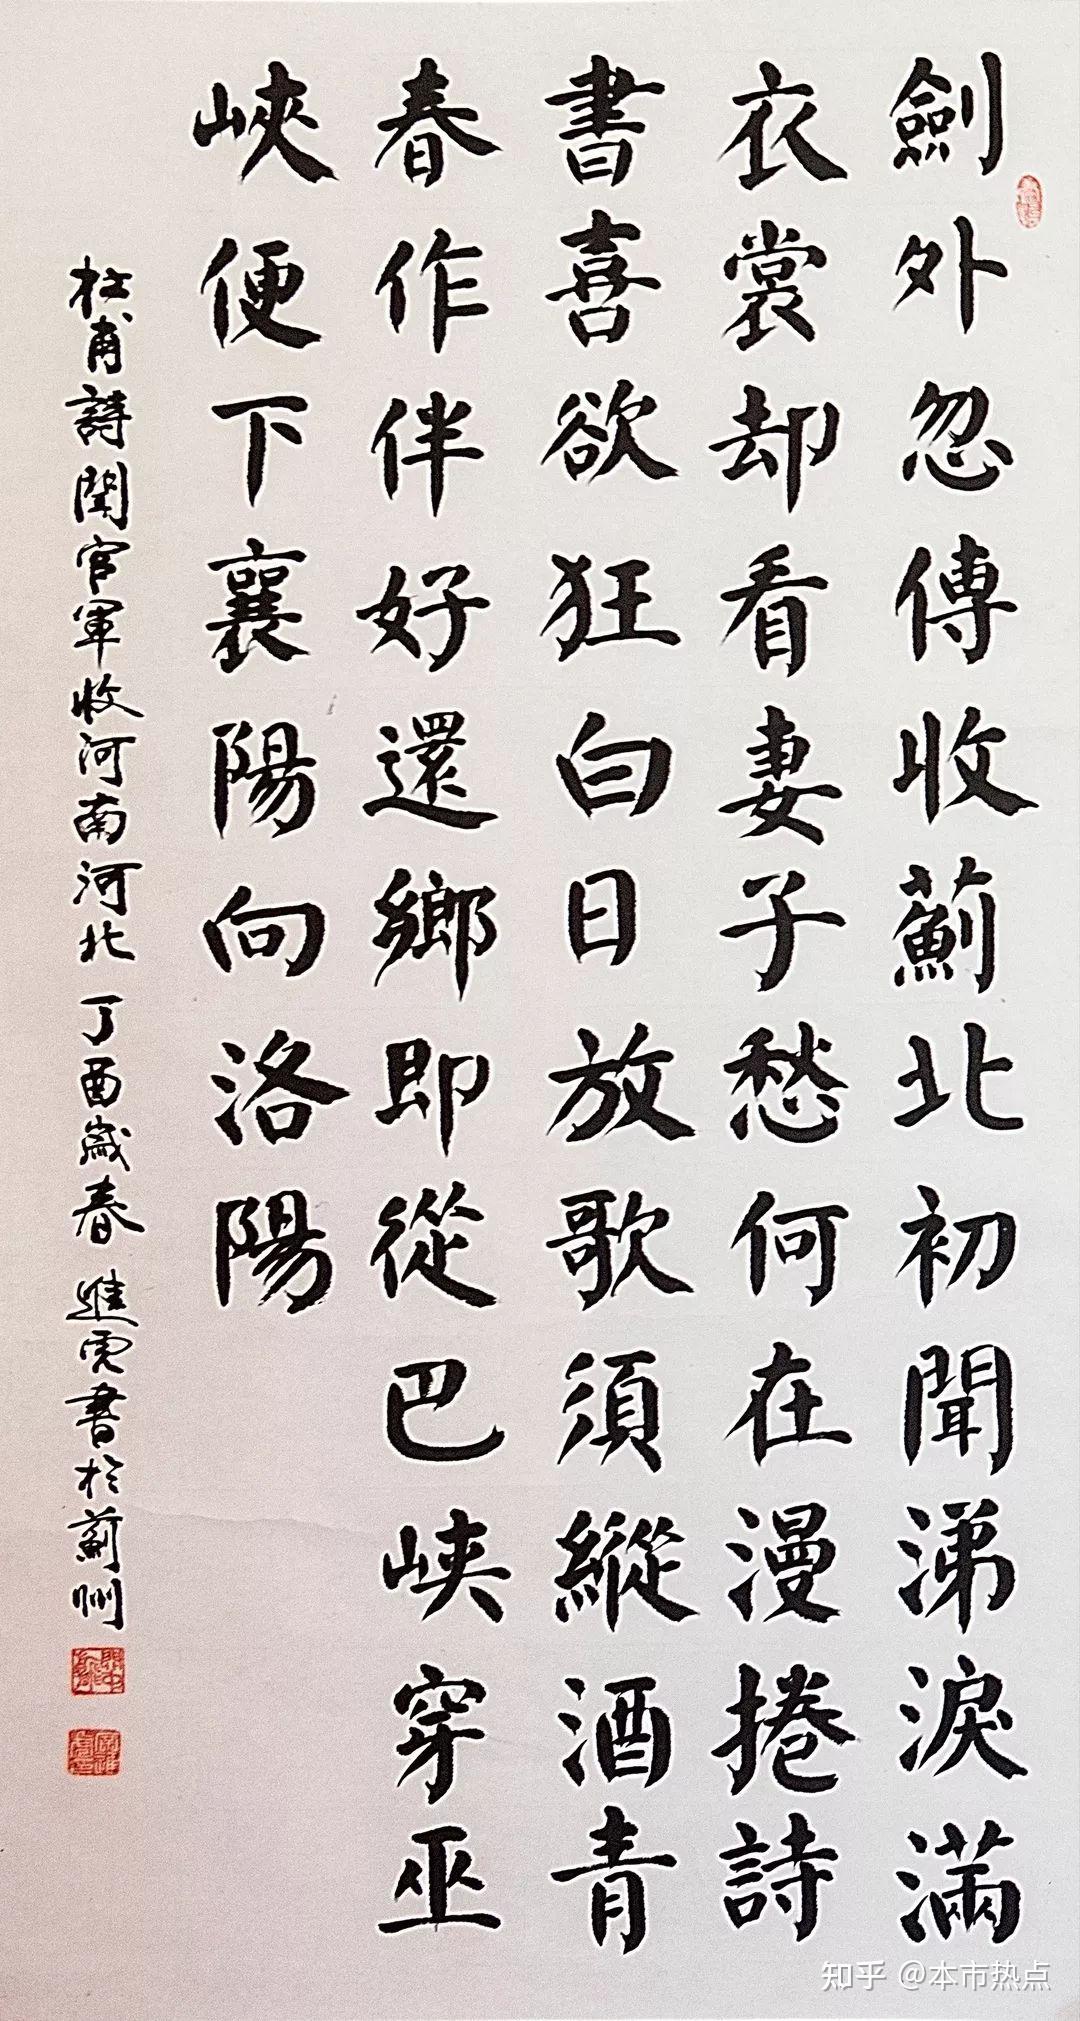 劍外忽傳收薊北初聞涕淚滿
衣裳却看妻子愁何在漫捲詩
書喜欲狂白日放歌須縱酒青
春作伴好還鄉即從巴峽穿巫
峽便下襄陽向洛陽
杜甫詩聞官軍收河南河北 丁酉歲春 進虎書於薊州
知乎 @本市热点